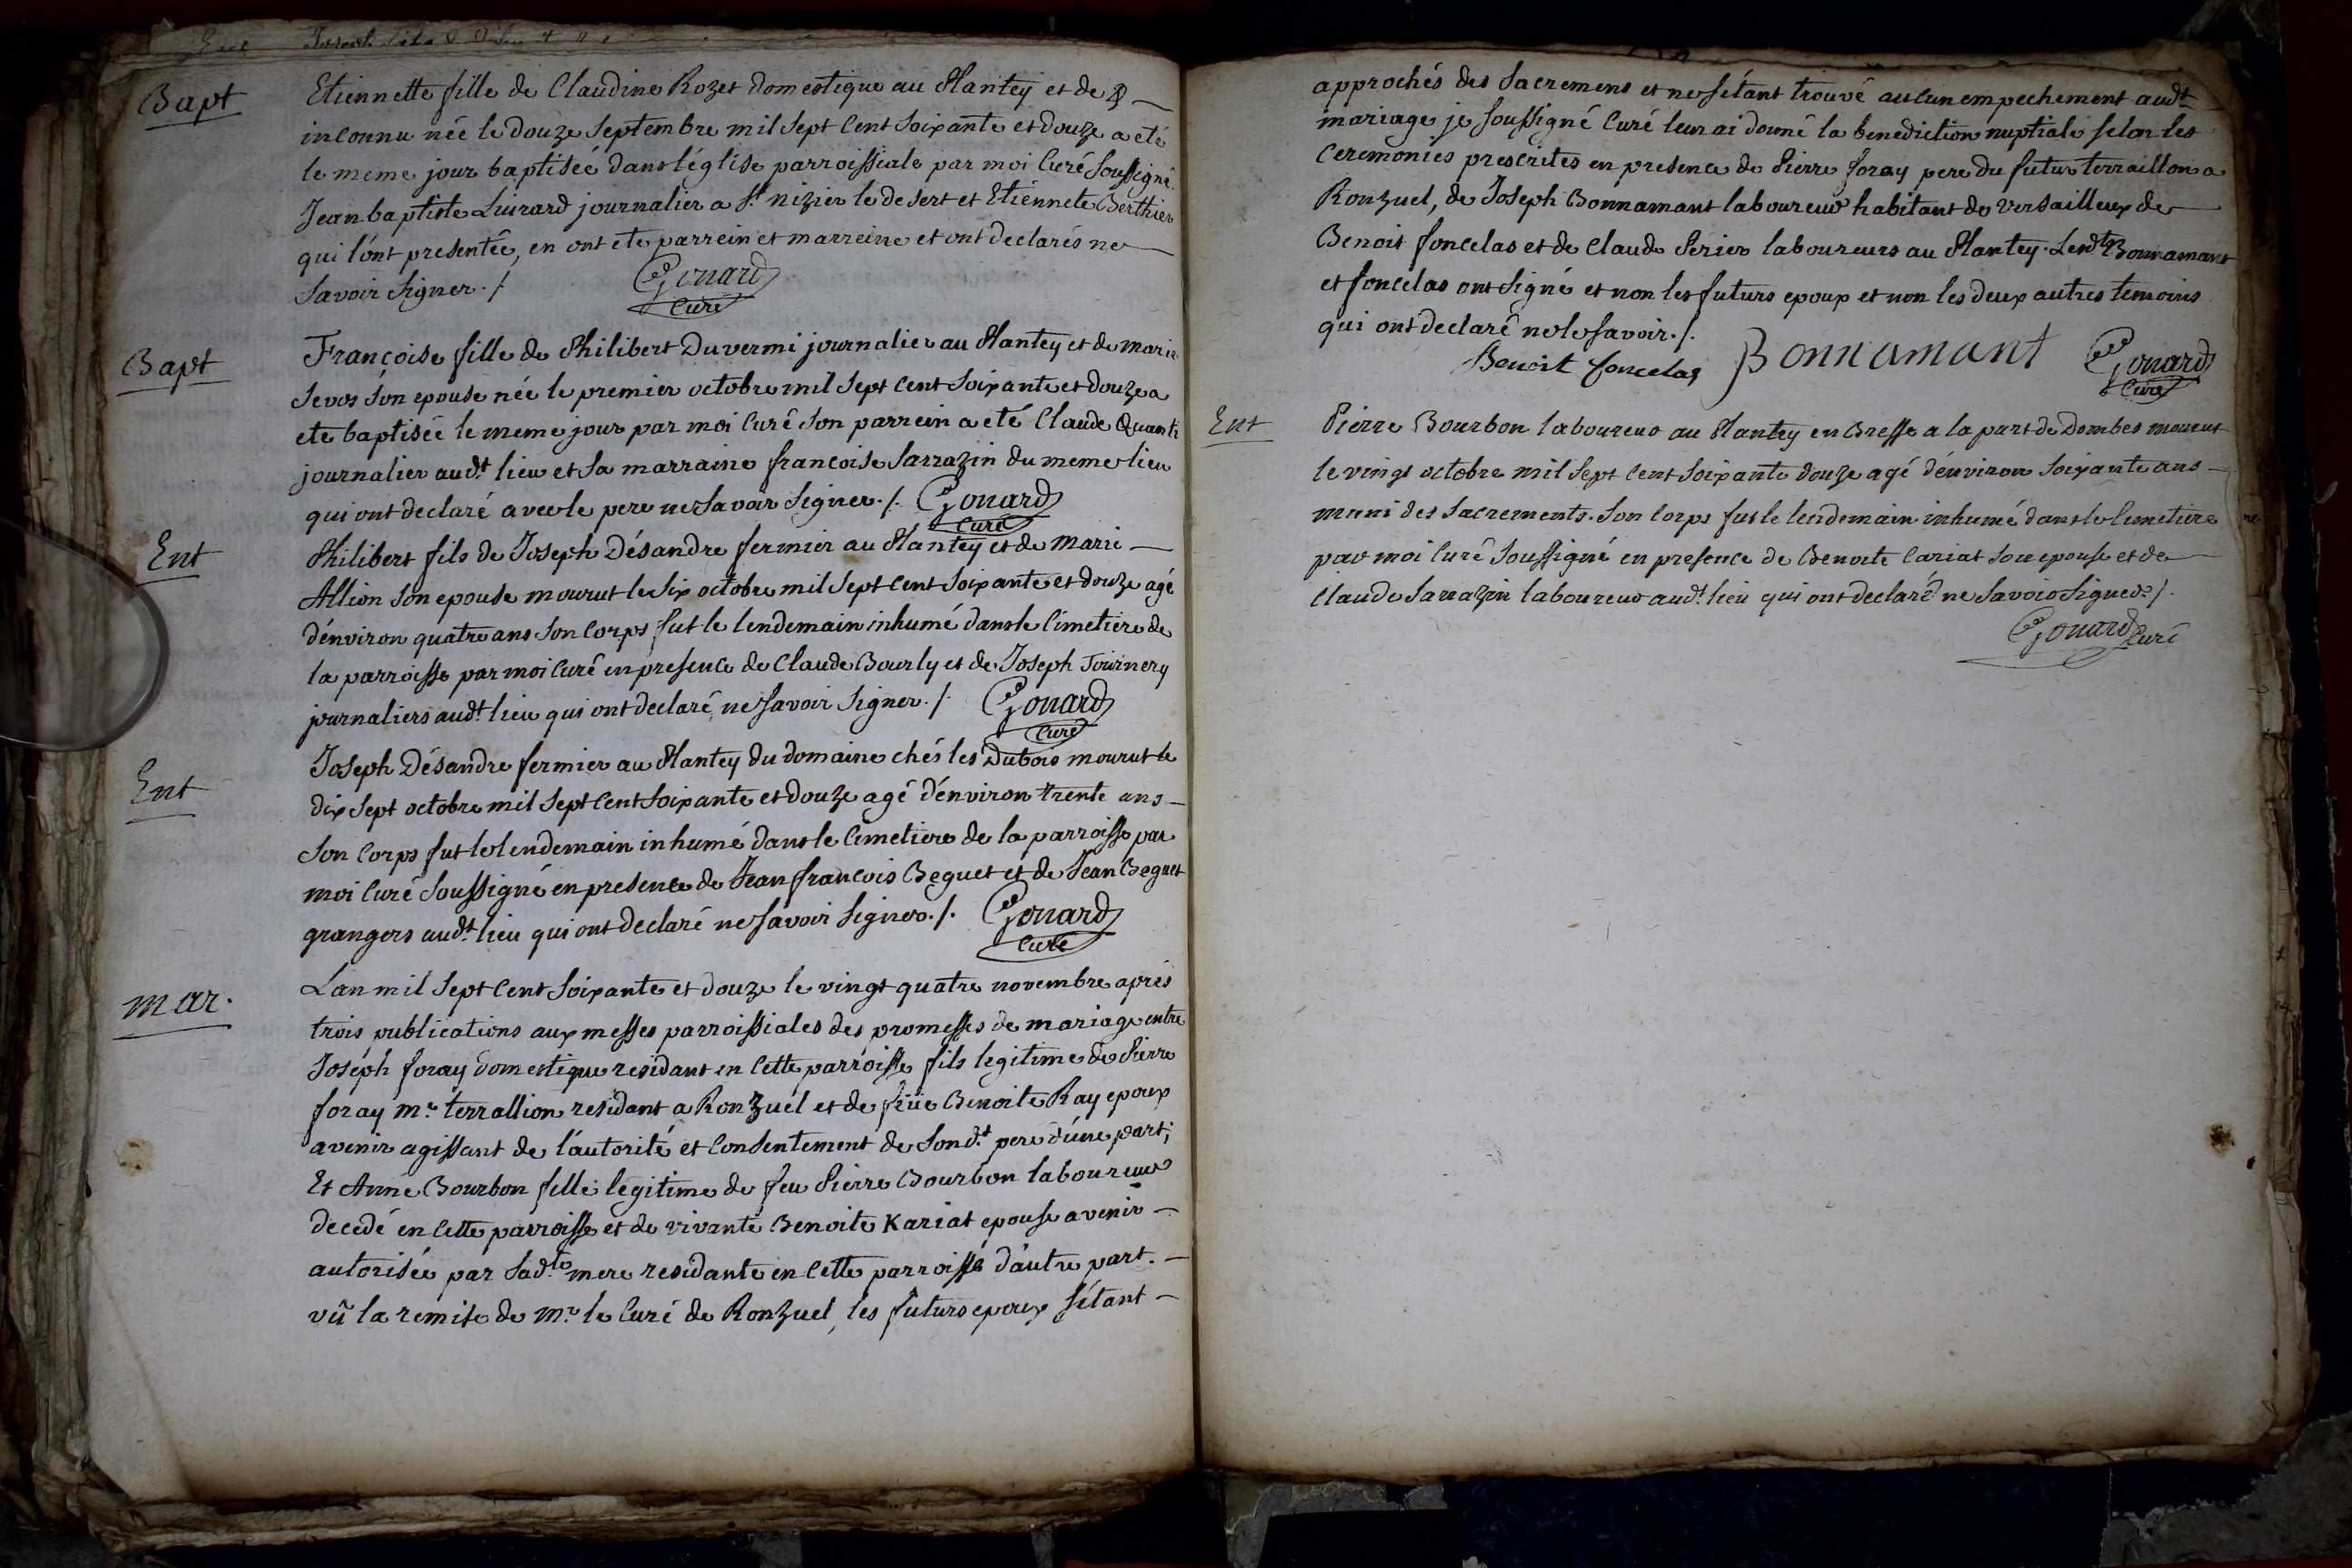 Bapt
Etiennette fille de Claudine Rozet domestique au Plantey et de P
inconnu née le douze septembre mil sept cent soixante et douze a eté
le meme jour baptiseé dans léglise parroissiale par moi Curé soussigné.
Jean baptiste Luirard journalier a St nizier le desert et Etiennete Berthier
qui l'ont presentée, en ont ete parrein et marreine et ont declarés ne
savoir signer ./. Gonard
Curé
Bapt
Françoise fille de Philibert Duvermi journalier au Plantey et de marie
Sevos son epouse née le premier octobre mil sept cent soixante et douze a
ete baptisée le meme jour par moi Curé son parrein a eté Claude Quanti
journalier audt lieu et sa marraine francoise Sarrazin du meme lieu
qui ont declaré avec le pere ne savoir signer ./. Gonard
Curé
Ent
Philibert fils de Joseph Désandre fermier au Plantey et de Marie
Allion son epouse mourut le six octobre mil sept cent soixante et douze agé
d'énviron quatre ans son corps fut le lendemain inhumé dans le Cimetiere de
la parroisse par moi Curé en presence de Claude Bourly et de Joseph Tournery
journaliers audt lieu qui ont declaré ne savoir signer ./. Gonard
Curé
Ent
Joseph Désandre fermier au Plantey du domaine chés les Dubois mourut le
dix sept octobre mil sept cent soixante et douze agé d'énviron trente ans
son corps fut le lendemain inhumé dans le Cimetiere de la parroisse par
moi Curé soussigné en presence de Jean francois Beguet et de Jean Beguet
grangers audt lieu qui ont declaré ne savoir signer ./. Gonard
Curé
mar.
Lan mil sept cent soixante et douze le vingt quatre novembre aprés
trois publications aux messes parroissiales des promesses de mariage entre
Joseph foray domestique residant en Cette parroisse fils legitime de Pierre
foray mc terrallion residant a Ronzuel et de füe Benoite Ray epoux
avenir agissant de l'autorité et Consentement de sondt pere d'une part;
Et Anne Bourbon fille légitime de feu Pierre Bourbon laboureur
decedé en Cette parroisse et de vivante Benoite Kariat epouse avenir
autorisée par sadte mere residante en Cette parroisse d'autre part.
vû la remise de Mr le Curé de Ronzuel, les futurs epoux sétant
approchés des sacremens et ne sétant trouvé aucun empechement audt
mariage je soussigné Curé leur ai donné la benediction nuptiale selon les
Ceremonies prescrites en presence de Pierre foray pere du futur terraillon a
Ronzuel, de Joseph Bonnamant laboureur habitant de Versailleux de
Benoit foncelas et de Claude Perier laboureurs au Plantey. Lesdts Bonnamant
et foncelas ont signé et non les futurs epoux et non les deux autres temoins
qui ont declaré ne le savoir ./.
Benoit foncelas Bonnamant Gonard
Curé
Ent
Pierre Bourbon laboureur au Plantey en Bresse a la part de Dombes mourut
le vingt octobre mil sept cent soixante douze agé d'énviron soixante ans
muni des Sacrements. Son Corps fut le lendemain inhumé dans le Cimetiere
par moi Curé soussigné en presence de Benoite Cariat son epouse et de
Claude Sarrazin laboureur audt lieu qui ont declaré ne savoir signer ./.
Gonard Curé